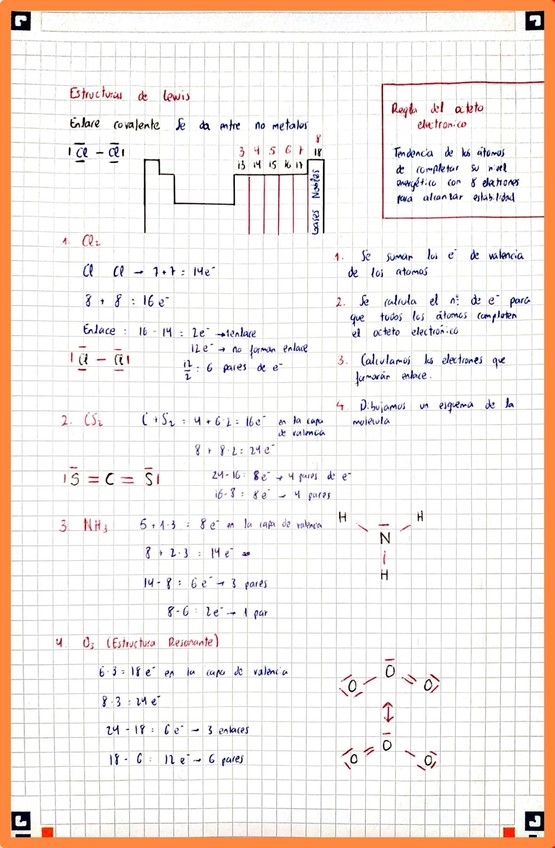 Estructuras de Lewis
Enlace covalente Se da entre no metales
|Cl - Cl|
8
3 4 5 6 7 18
13 14 15 16 17
Gases Nobles
Regla del octeto
electronico
Tendencia de los átomos
de completar su nivel
energético con 8 electrones
para alcanzar estabilidad
1. Cl2
Cl Cl → 7+7 = 14e⁻
8 + 8 = 16 e⁻
Enlace: 16 - 14 = 2e⁻ → 1 enlace
12e⁻ → no forman enlace
12/2 : 6 pares de e⁻
|Cl - Cl|
1. Se suman los e⁻ de valencia
de los átomos
2. Se calcula el nº de e⁻ para
que todos los átomos completen
el octeto electrónico
3. Calculamos los electrones que
formarán enlace.
4 Dibujamos un esquema de la
molécula
2. CS2 C + S2 = 4 + 6·2 = 16e⁻ en la capa
de valencia
8 + 8·2 = 24e⁻
24-16 = 8e⁻ → 4 pares de e⁻
16-8 = 8e⁻ → 4 pares
|S = C = S|
3. NH3 5 + 1·3 = 8e⁻ en la capa de valencia
8 + 2·3 = 14e⁻
14 - 8 = 6e⁻ → 3 pares
8-6 = 2e⁻ → 1 par
H H
N
H
4. O3 (Estructura Resonante)
6·3 = 18e⁻ en la capa de valencia
8·3 = 24e⁻
24 - 18 = 6e⁻ → 3 enlaces
18 - 6 = 12e⁻ → 6 pares
O - O = O
O = O - O